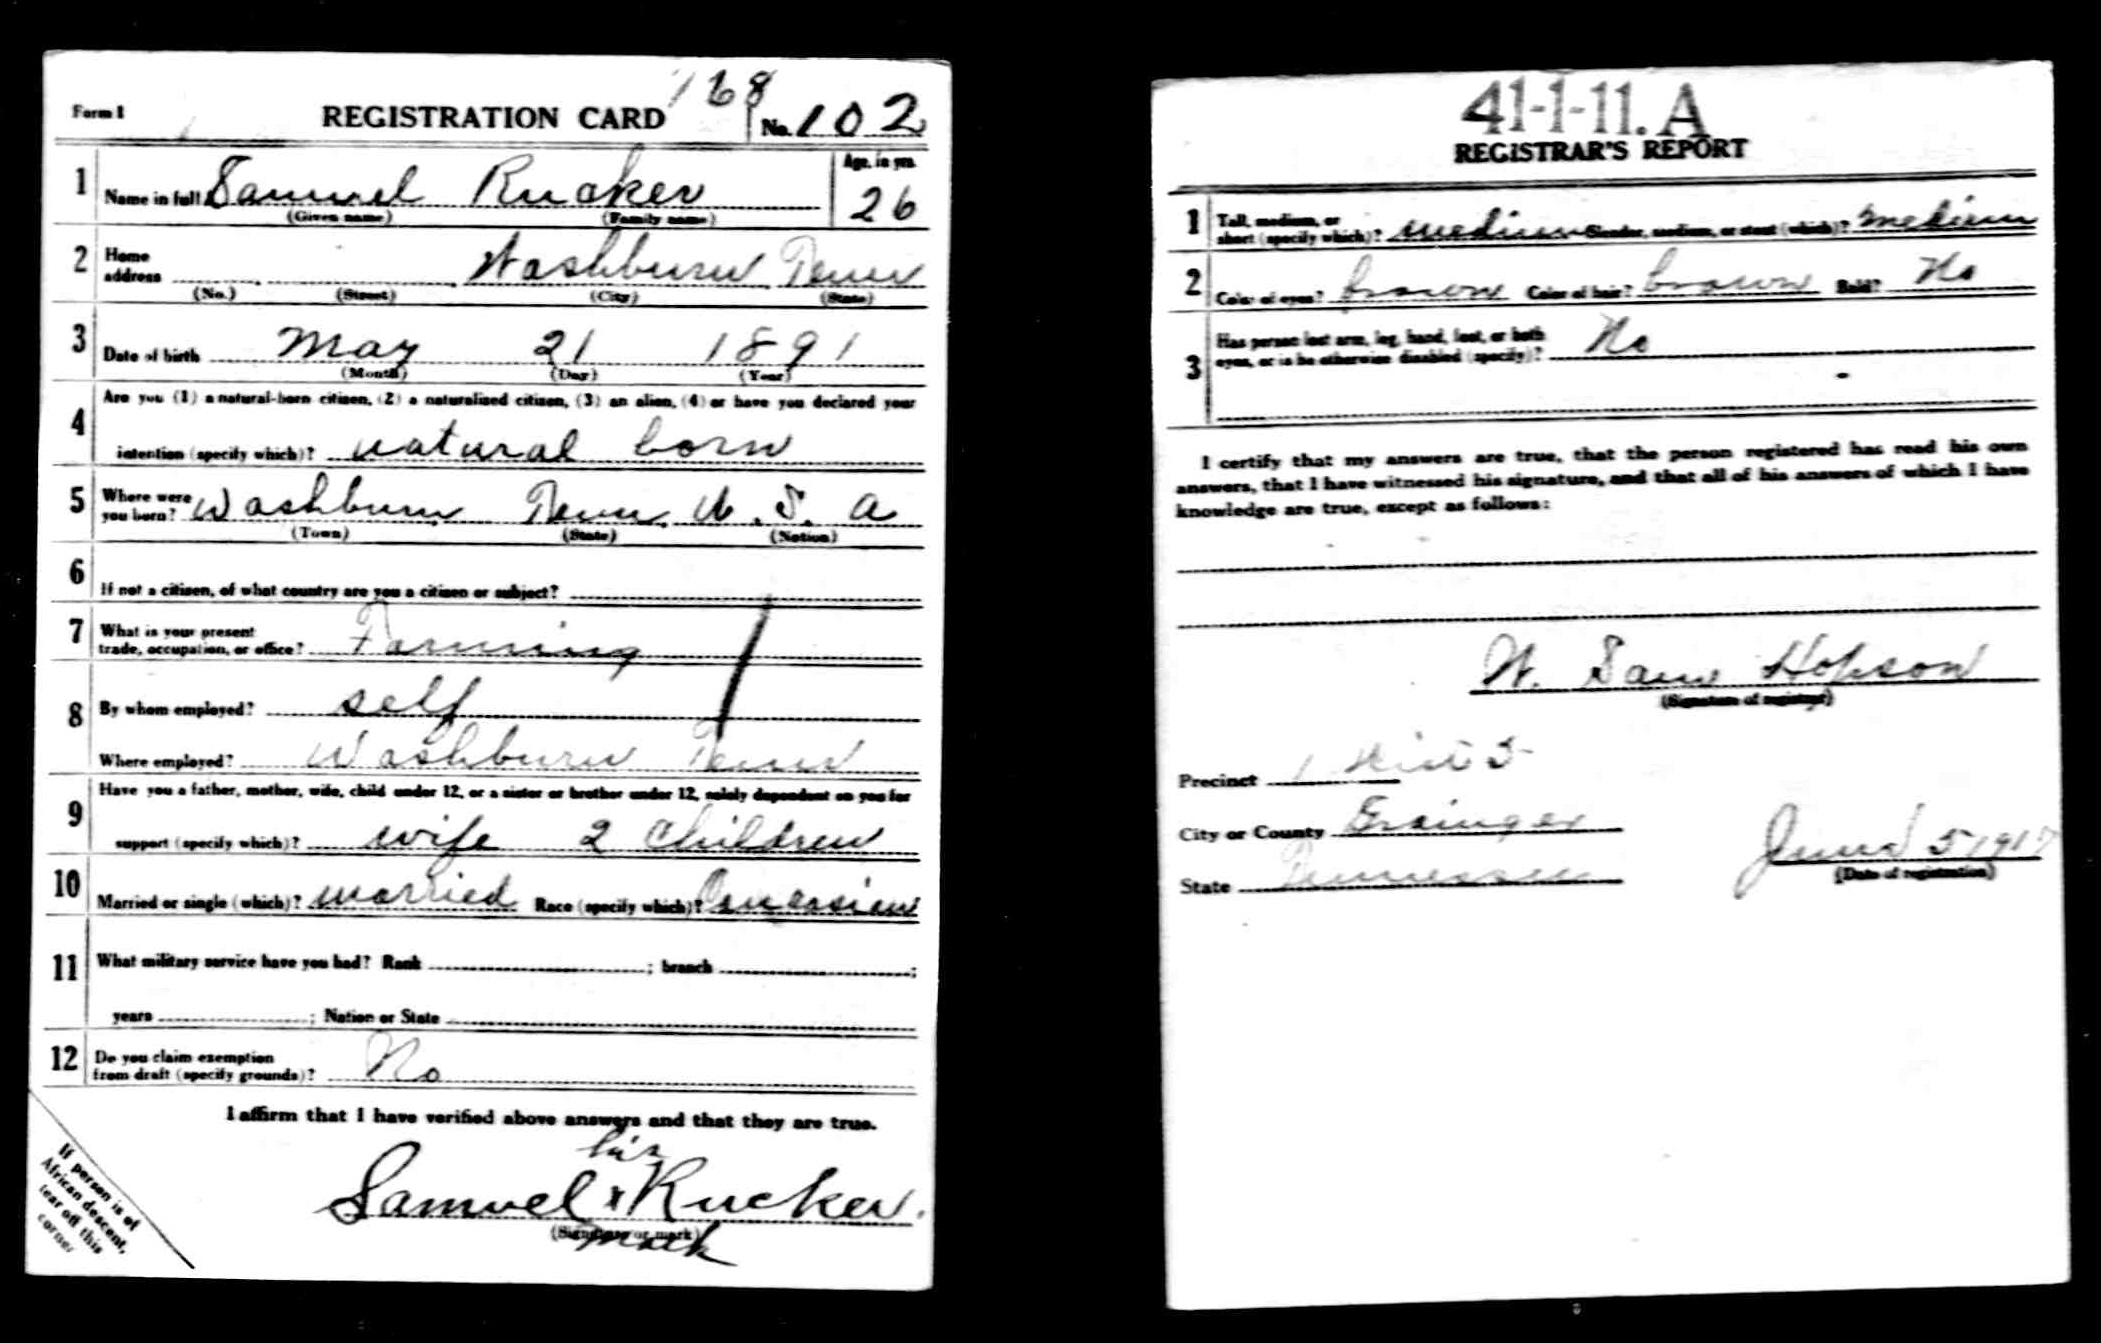 168
Form 1 REGISTRATION CARD No. 102
1 Name in full Samuel Rucker Age, in yrs. 26
(Given name) (Family name)
2 Home address Washburn Tenn
(No.) (Street) (City) (State)
3 Date of birth May 21 1891
(Month) (Day) (Year)
4 Are you (1) a natural-born citizen, (2) a naturalized citizen, (3) an alien, (4) or have you declared your
intention (specify which)? natural born
5 Where were you born? Washburn Tenn. U. S. A
(Town) (State) (Nation)
6 If not a citizen, of what country are you a citizen or subject?
7 What is your present
trade, occupation, or office? Farming
8 By whom employed? self
Where employed? Washburn Tenn
9 Have you a father, mother, wife, child under 12, or a sister or brother under 12, solely dependent on you for
support (specify which)? wife 2 Children
10 Married or single (which)? married Race (specify which)? Caucasian
11 What military service have you had? Rank ; branch ;
years ; Nation or State
12 Do you claim exemption
from draft (specify grounds)? No
I affirm that I have verified above answers and that they are true.
his
Samuel x Rucker.
(Signature or mark)
mark
If person is of
African descent,
tear off this
corner
41-1-11. A
REGISTRAR'S REPORT
1 Tall, medium, or
short (specify which)? medium Slender, medium, or stout (which)? medium
2 Color of eyes? brown Color of hair? brown Bald? No
3 Has person lost arm, leg, hand, foot, or both
eyes, or is he otherwise disabled (specify)? No
I certify that my answers are true, that the person registered has read his own
answers, that I have witnessed his signature, and that all of his answers of which I have
knowledge are true, except as follows:
W. Sam Hopson
(Signature of registrar)
Precinct 1 Dist 5
City or County Grainger
State Tennessee
June 5 1917
(Date of registration)